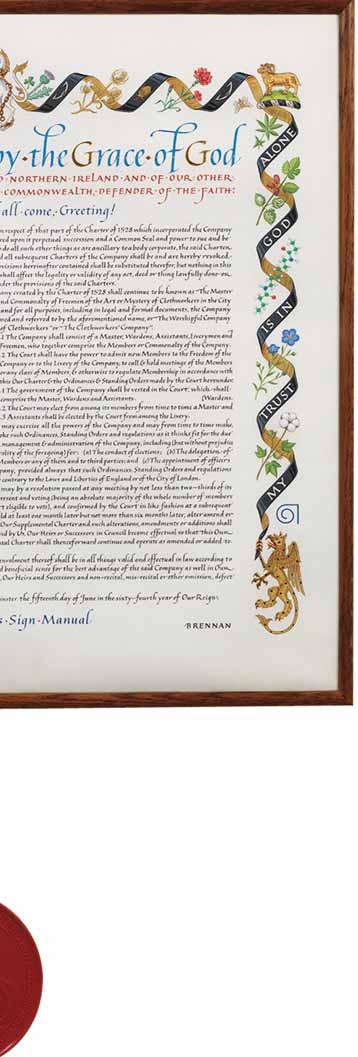 by·the Grace·of God
NORTHERN·IRELAND·AND·OF·OUR·OTHER
COMMONWEALTH,·DEFENDER·OF·THE·FAITH:
all·come,·Greeting!
in respect of that part of the Charter of 1528 which incorporated the Company
upon it perpetual succession and a Common Seal and power to sue and be
do all such other things as are ancillary to a body corporate, the said Charter,
all subsequent Charters of the Company shall be and are hereby revoked.
hereinafter contained shall be substituted therefor; but nothing in this
shall affect the legality or validity of any act, deed or thing lawfully done
under the provisions of the said Charters.
created by the Charter of 1528 shall continue to be known as "The Master
and Commonalty of Freemen of the Art or Mystery of Clothworkers in the City
and for all purposes, including in legal and formal documents, the Company
named and referred to by the aforementioned name, or "The Worshipful Company
of Clothworkers" or "The Clothworkers' Company".
1 The Company shall consist of a Master, Wardens, Assistants, Liverymen and
Freemen, who together comprise the Members or Commonalty of the Company.
2 The Court shall have the power to admit new Members to the Freedom of the
Company or to the Livery of the Company, to call & hold meetings of the Members
or any class of Members, & otherwise to regulate Membership in accordance with
this Our Charter & the Ordinances & Standing Orders made by the Court hereunder.
1 The government of the Company shall be vested in the Court, which shall
comprise the Master, Wardens and Assistants. (Wardens.
2 The Court may elect from among its members from time to time a Master and
3 Assistants shall be elected by the Court from among the Livery.
may exercise all the powers of the Company and may from time to time make,
such Ordinances, Standing Orders and regulations as it thinks fit for the due
management & administration of the Company, including (but without prejudice
generality of the foregoing) for: (a) The conduct of elections; (b) The delegation of
Members or any of them and to third parties; and (c) The appointment of officers
provided always that such Ordinances, Standing Orders and regulations
contrary to the Laws and Liberties of England or of the City of London.
may by a resolution passed at any meeting by not less than two-thirds of its
present and voting (being an absolute majority of the whole number of members
eligible to vote), and confirmed by the Court in like fashion at a subsequent
held at least one month later but not more than six months later, alter amend or
Our Supplemental Charter and such alterations, amendments or additions shall
by Us, Our Heirs or Successors in Council become effectual so that this Our
Charter shall thenceforward continue and operate as amended or added to
enrolment thereof shall be in all things valid and effectual in law according to
beneficial sense for the best advantage of the said Company as well in Our
Our Heirs and Successors and non-recital, mis-recital or other omission, defect
the fifteenth day of June in the sixty-fourth year of Our Reign:
Sign·Manual
·BRENNAN
MY
TRUST
IS IN
GOD
ALONE